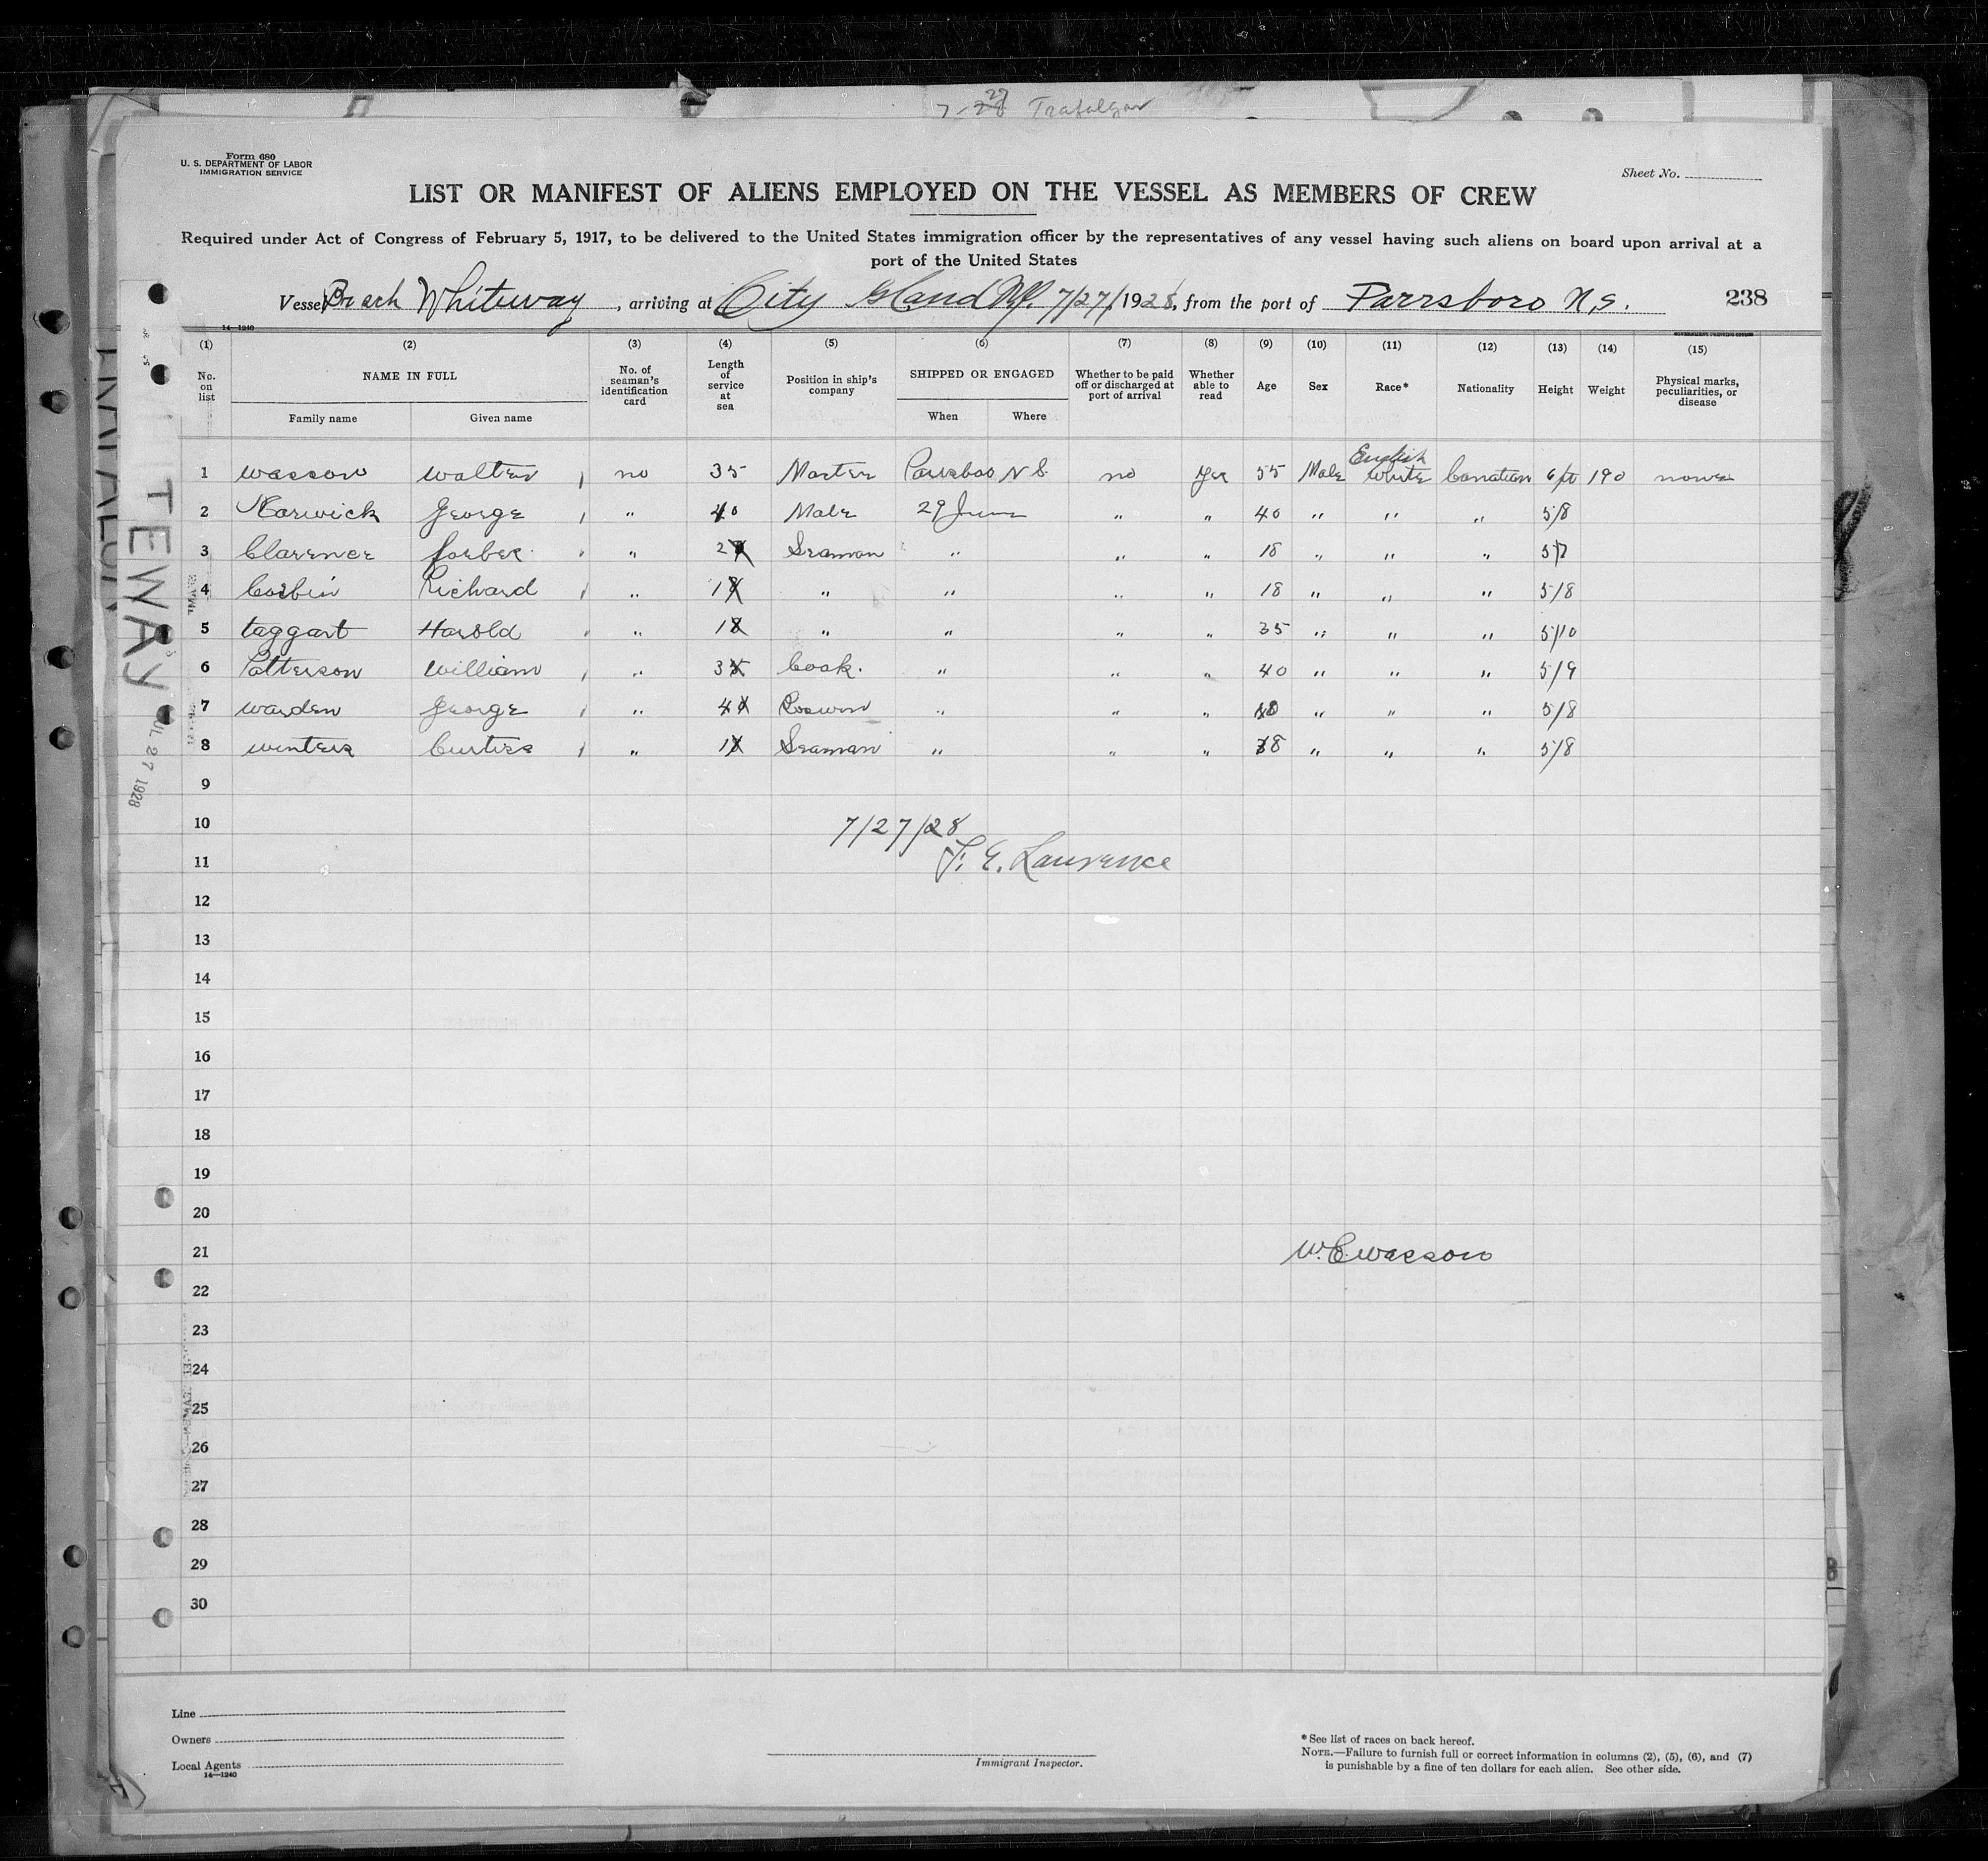 7-28 27 Trafalgar
Form 680
U. S. DEPARTMENT OF LABOR
IMMIGRATION SERVICE
Sheet No.
LIST OR MANIFEST OF ALIENS EMPLOYED ON THE VESSEL AS MEMBERS OF CREW
Required under Act of Congress of February 5, 1917, to be delivered to the United States immigration officer by the representatives of any vessel having such aliens on board upon arrival at a
port of the United States
Vessel Whiteway, arriving at City Island 7/27/1928, from the port of Parrsboro N.S. 238
14—1240 GOVERNMENT PRINTING OFFICE
(1) (2) (3) (4) (5) (6) (7) (8) (9) (10) (11) (12) (13) (14) (15)
No. on list NAME IN FULL No. of seaman's identification card Length of service at sea Position in ship's company SHIPPED OR ENGAGED Whether to be paid off or discharged at port of arrival Whether able to read Age Sex Race* Nationality Height Weight Physical marks, peculiarities, or disease
Family name Given name When Where
English
1 wasson walter no 35 Master N S. no yes 55 Male white 6 ft 190 none
2 George " 40 Mate 29 June " " 40 " " " 5/8
3 Clarence " 2 Seaman " " " 18 " " " 5/7
4 Corbin Richard " 1 " " " " 18 " " " 5/8
5 taggart Harold " 1 " " " " 35 " " " 5/10
6 Patterson William " 3 Cook. " " " 40 " " " 5/9
7 warden George " 4 " " " " " " 5/8
8 winters Curtiss " 1 Seaman " " " 38 " " " 5/8
9
10 7/27/28
11 F. E. Laurence
12
13
14
15
16
17
18
19
20
21 W. E. wasson
22
23
24
25
26
27
28
29
30
Line
Owners
Local Agents
14—1240
Immigrant Inspector.
* See list of races on back hereof.
NOTE.—Failure to furnish full or correct information in columns (2), (5), (6), and (7)
is punishable by a fine of ten dollars for each alien. See other side.
TEWAY
JUL 27 1928
TRAFALGAR